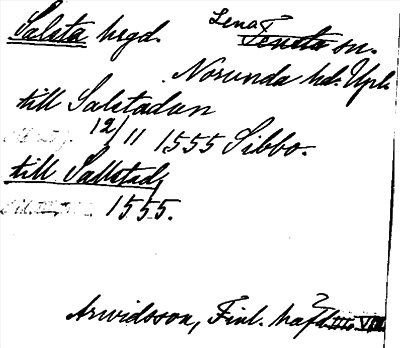 Salsta hrgd. Lena
Tensta sn.
Norunda hd. Upl.
till Salstadan
12/11 1555 Sibbo.
till Sallstad,
1555.
Arvidsson, Finl. hafd.